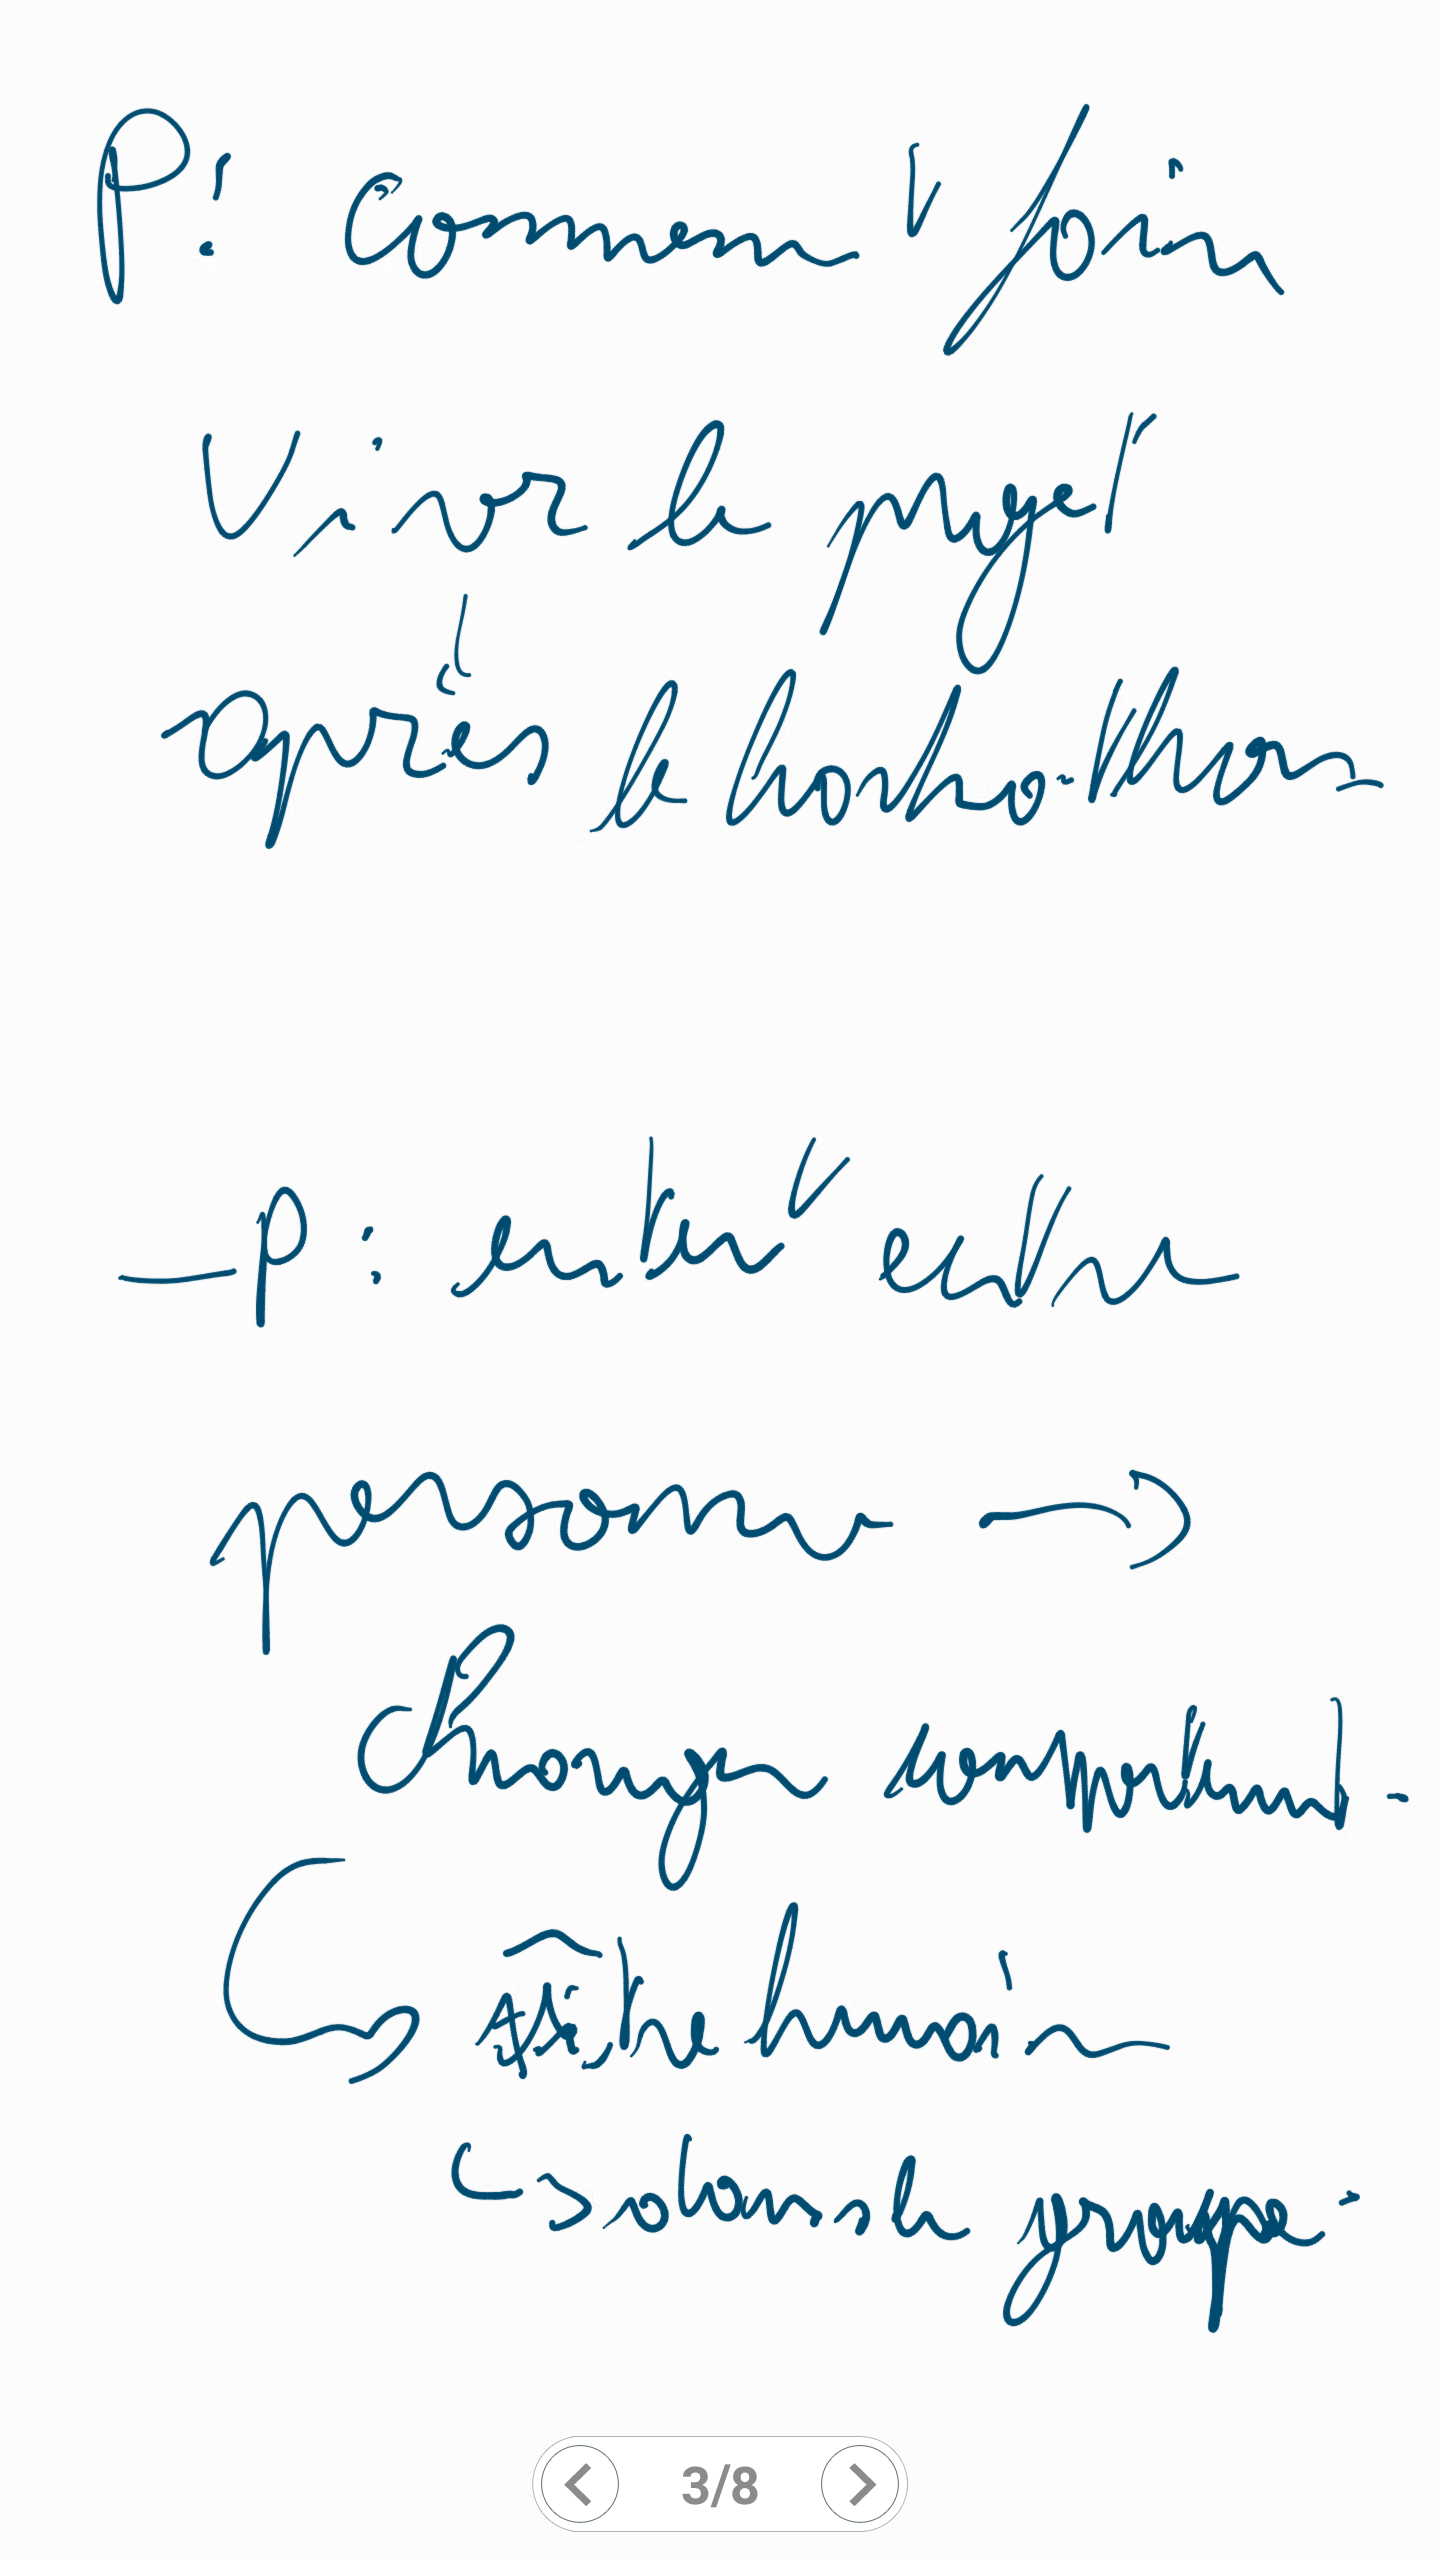 P: Comment foin
Vivre le projet
après le hackathon
- P: enter entre
personne →
Changer comportement.
être humain
↳ dans le groupe.
3/8